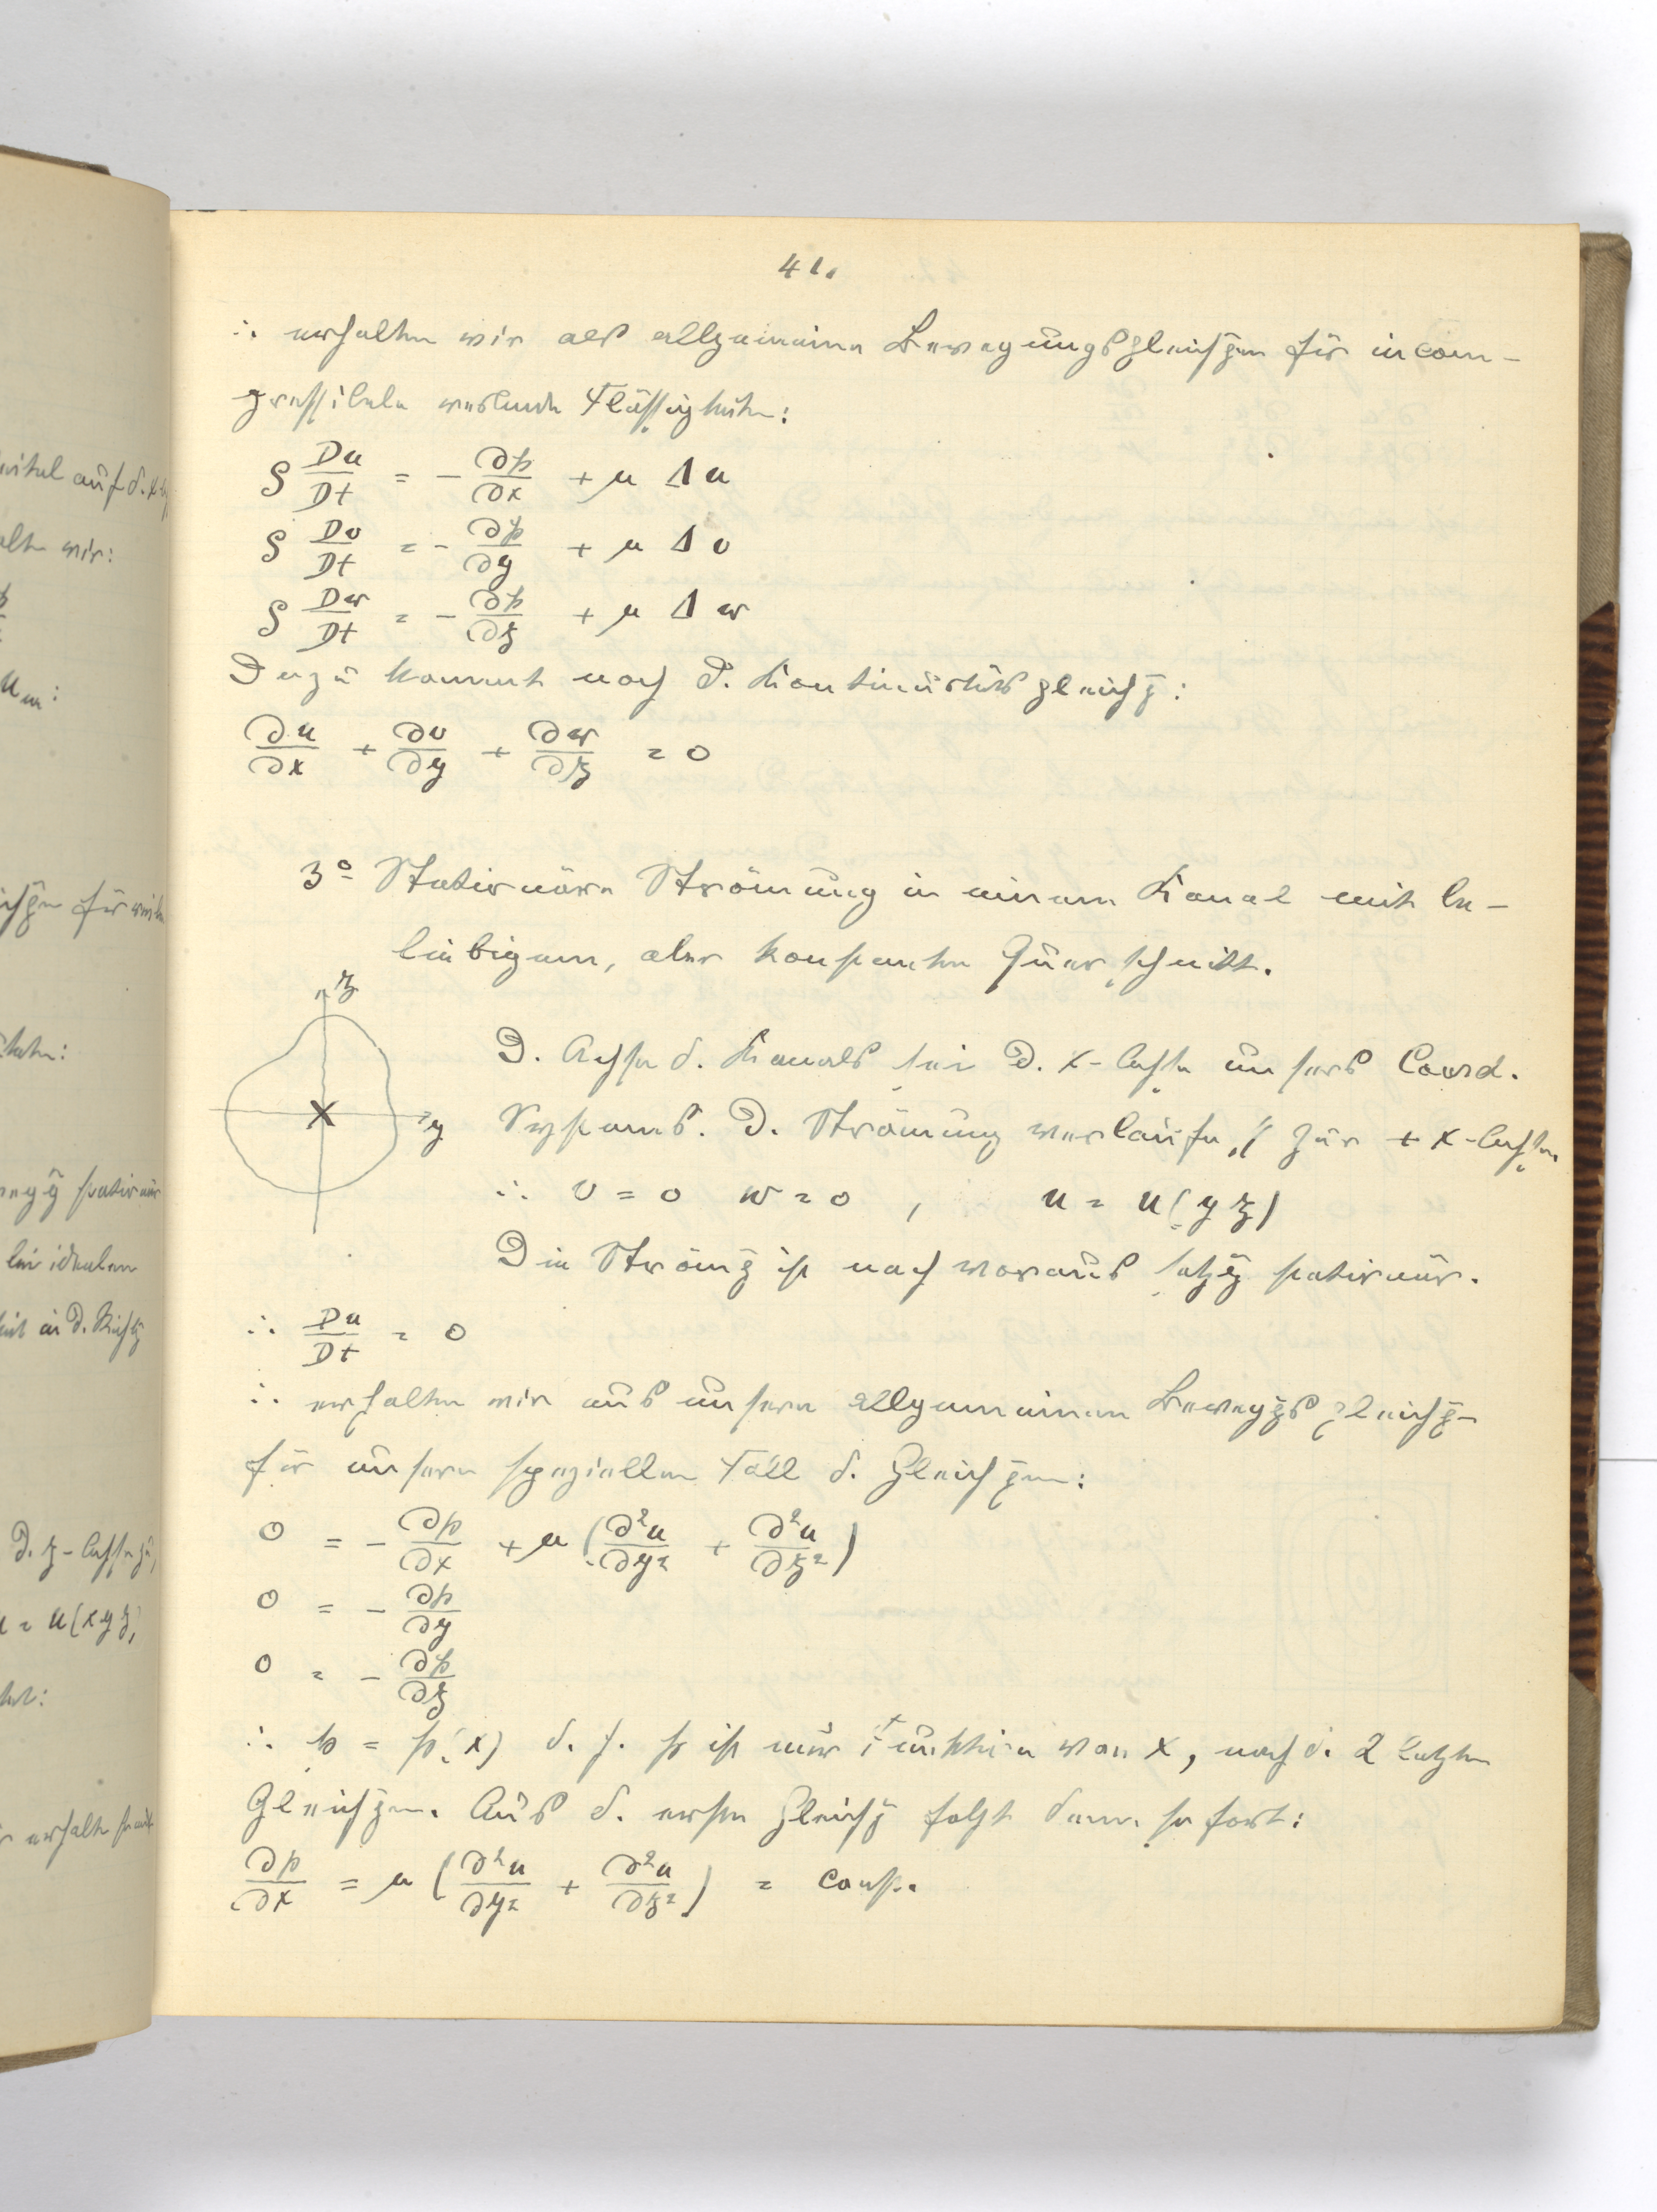 41.
∴ erhalten wir als allgemeine Bewegungsgleichgen für incom-
pressibele reibende Flüssigkeiten:
ρ Du/Dt = - ∂p/∂x + μ Δ u
ρ Dv/Dt = - ∂p/∂y + μ Δ v
ρ Dw/Dt = - ∂p/∂z + μ Δ w
Dazu kommt noch d. Kontinuitätsgleichg:
∂u/∂x + ∂v/∂y + ∂w/∂z = 0
3° Stationäre Strömung in einem Kanal mit be-
liebigem, aber konstanten Querschnitt.
z
y
X
D. Achse d. Kanals sei d. x-Achse unsers Coord.
Systems. D. Strömung verlaufe // zur + x-Achse.
∴ v = 0 w = 0 , u = u(y z)
Die Strömg ist nach Voraussetzg stationär.
∴ Du/Dt = 0
∴ erhalten wir aus unsern allgemeinen Bewegggsgleichg-
für unsern speziellen Fall d. Gleichgen:
0 = - ∂p/∂x + μ (∂²u/∂y² + ∂²u/∂z²)
0 = - ∂p/∂y
0 = - ∂p/∂z
∴ p = p(x) d. h. p ist nur Funktion von x, nach d. 2 letzten
Gleichgen. Aus d. ersten Gleichg folgt dann sofort:
∂p/∂x = μ (∂²u/∂y² + ∂²u/∂z²) = const.
auf d. x
alten wir:
für
stationär
bei idealen
in d. Richtg
D. z-Achse zu
u = u(x y z)
erhalten